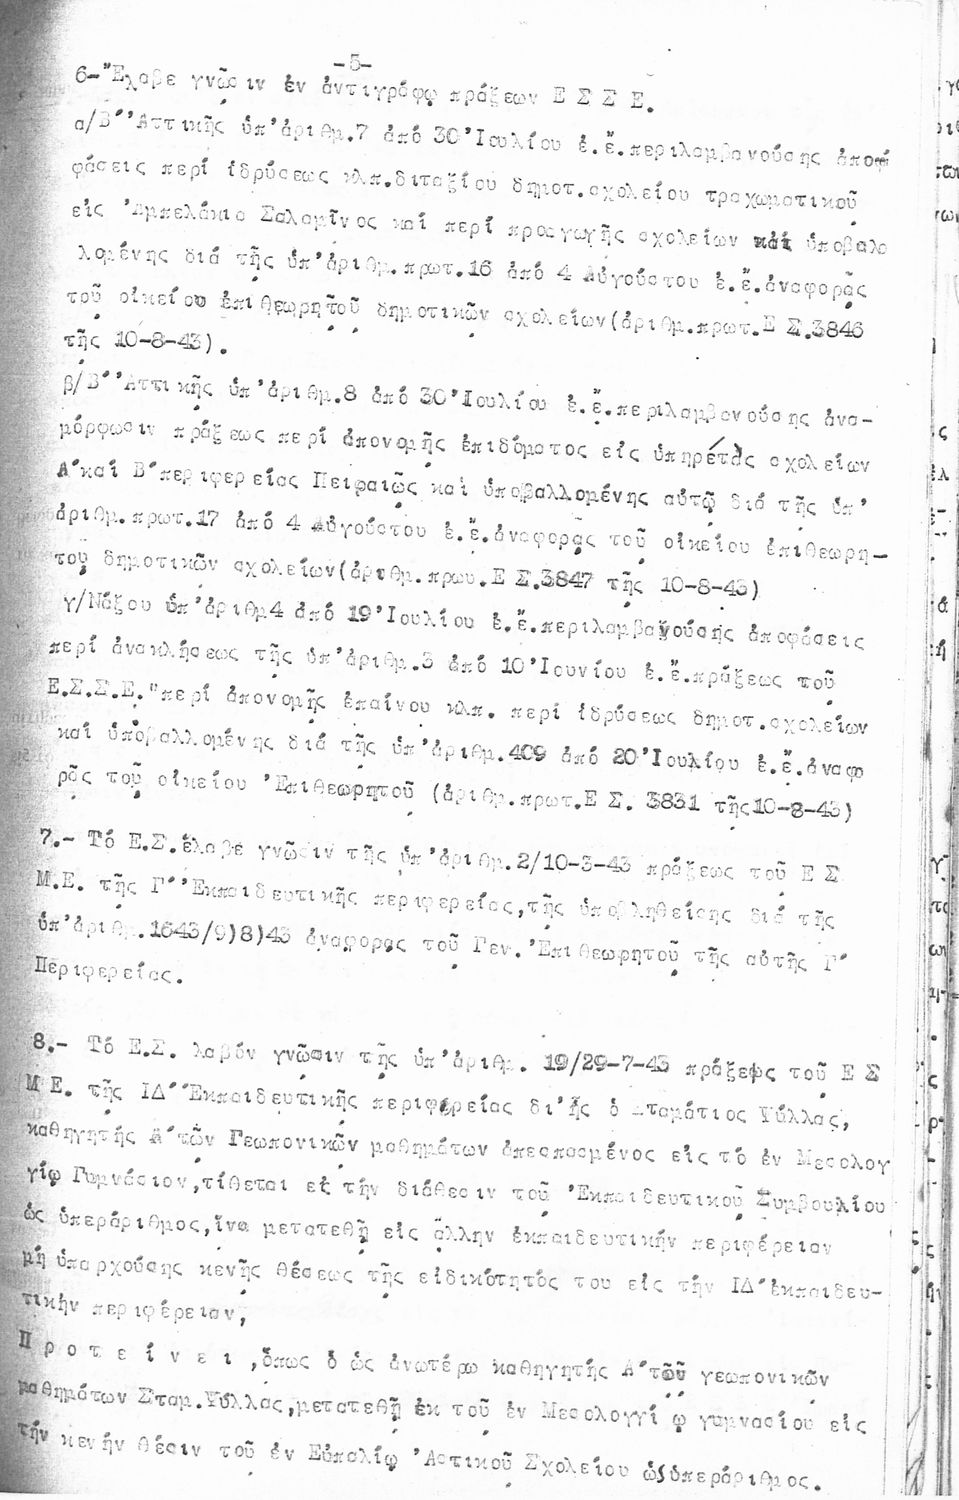 -5-
6-"Ἔλαβε γνῶσιν ἐν ἀντιγράφῳ πράξεων Ε Σ Σ Ε.
α/Β´'Αττικῆς ὑπ'ἀριθμ.7 ἀπό 30'Ιουλίου ἐ.ἔ.περιλαμβανούσης ἀποφ
φάσεις περί ἱδρύσεως κλπ.διταξίου δημοτ.σχολείου τραχωματικοῦ
εἰς 'Αμπελάκια Σαλαμῖνος καί περί προαγωγῆς σχολείων καί ὑποβαλο
λομένης διά τῆς ὑπ'ἀριθμ.πρωτ.16 ἀπό 4 Αὐγούστου ἐ.ἔ.ἀναφορᾶς
τοῦ οἰκείου ἐπιθεωρητοῦ δημοτικῶν σχολείων(ἀριθμ.πρωτ.Ε Σ.3846
τῆς 10-8-43).
β/Β´'Αττικῆς ὑπ'ἀριθμ.8 ἀπό 30'Ιουλίου ἐ.ἔ.περιλαμβανούσης ἀνα-
μόρφωσιν πράξεως περί ἀπονομῆς ἐπιδόματος εἰς ὑπηρέτας σχολείων
Α´καί Β´περιφερείας Πειραιῶς καί ὑποβαλλομένης αὐτῷ διά τῆς ὑπ'
ἀριθμ.πρωτ.17 ἀπό 4 Αὐγούστου ἐ.ἔ.ἀναφορᾶς τοῦ οἰκείου ἐπιθεωρη-
τοῦ δημοτικῶν σχολείων(ἀριθμ.πρωυ.Ε Σ.3847 τῆς 10-8-43)
γ/Νάξου ὑπ'ἀριθμ4 ἀπό 19'Ιουλίου ἐ.ἔ.περιλαμβανούσης ἀποφάσεις
περί ἀνακλήσεως τῆς ὑπ'ἀριθμ.3 ἀπό 10'Ιουνίου ἐ.ἔ.πράξεως τοῦ
Ε.Σ.Σ.Ε."περί ἀπονομῆς ἐπαίνου κλπ. περί ἱδρύσεως δημοτ.σχολείων
καί ὑποβαλλομένης διά τῆς ὑπ'ἀριθμ.409 ἀπό 20'Ιουλίου ἐ.ἔ.ἀναφ
ρᾶς τοῦ οἰκείου 'Επιθεωρητοῦ (ἀριθμ.πρωτ.Ε Σ. 3831 τῆς10-8-43)
7.- Τό Ε.Σ.ἔλαβε γνῶσιν τῆς ὑπ'ἀριθμ.2/10-3-43 πράξεως τοῦ Ε Σ
Μ.Ε. τῆς Γ´'Εκπαιδευτικῆς περιφερείας,τῆς ὑποβληθείσης διά τῆς
ὑπ'ἀριθμ.1643/9)8)43 ἀναφορᾶς τοῦ Γεν.'Επιθεωρητοῦ τῆς αὐτῆς Γ´
Περιφερείας.
8.- Τό Ε.Σ. λαβόν γνῶσιν τῆς ὑπ'ἀριθμ. 19/29-7-43 πράξεως τοῦ Ε Σ
Μ Ε. τῆς ΙΔ´'Εκπαιδευτικῆς περιφερείας δι'ἧς ὁ Σταμάτιος Ψύλλας,
καθηγητής Α´τῶν Γεωπονικῶν μαθημάτων ἀπεσπασμένος εἰς τό ἐν Μεσολογ
γίῳ Γυμνάσιον,τίθεται εἰ τήν διάθεσιν τοῦ 'Εκπαιδευτικοῦ Συμβουλίου
ὡς ὑπεράριθμος,ἵνα μετατεθῇ εἰς ἄλλην ἐκπαιδευτικήν περιφέρειαν
μή ὑπαρχούσης κενῆς θέσεως τῆς εἰδικότητός του εἰς τήν ΙΔ´ἐκπαιδευ-
τικήν περιφέρειαν,
Π ρ ο τ ε ί ν ε ι ,ὅπως ὁ ὡς ἀνωτέρω καθηγητής Α´τῶν γεωπονικῶν
μαθημάτων Σταμ.Ψύλλας,μετατεθῇ ἐκ τοῦ ἐν Μεσολογγί ῳ γυμνασίου εἰς
τήν κενήν θέσιν τοῦ ἐν Εὐπαλίῳ 'Αστικοῦ Σχολείου ὡς ὑπεράριθμος.